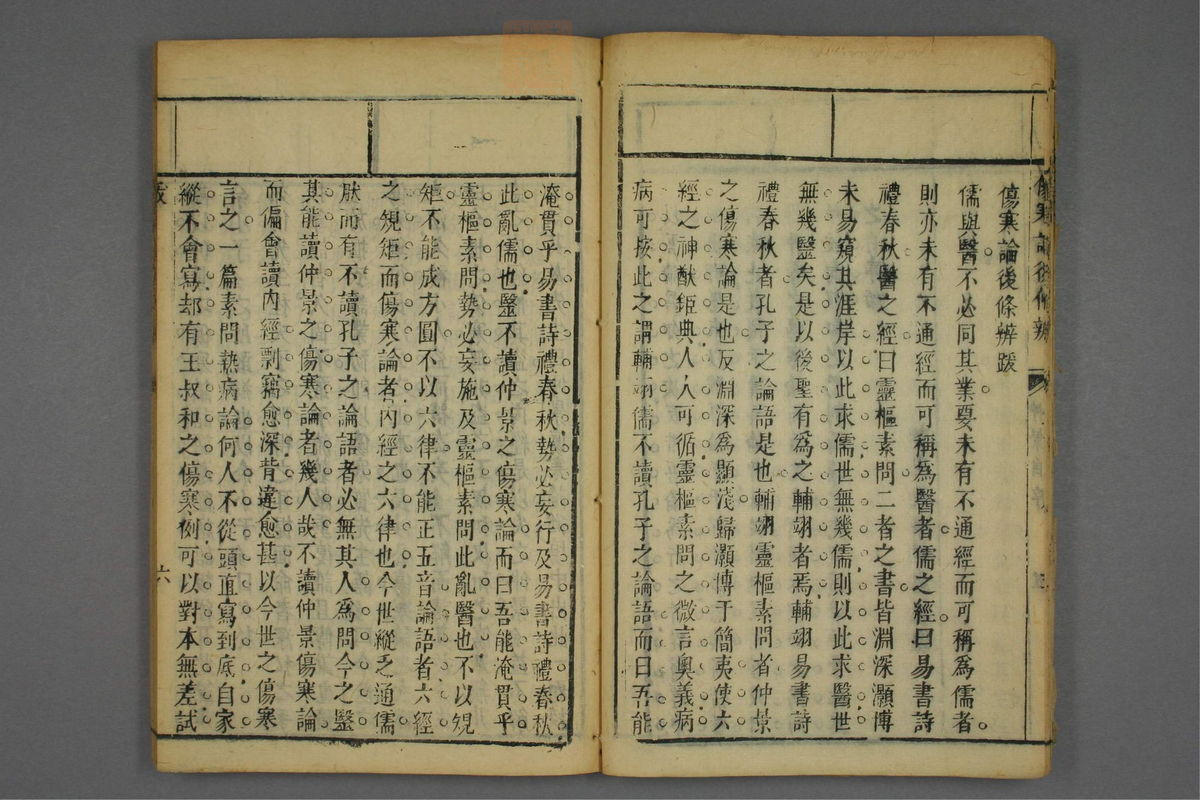 傷寒論後條辨
傷寒論後條辨跋
儒與醫不必同其業要未有不通經而可稱為儒者
則亦未有不通經而可稱為醫者儒之經曰易書詩
禮春秋醫之經曰靈樞素問二者之書皆淵深灝博
未易窺其涯岸以此求儒世無幾儒則以此求醫世
無幾醫矣是以後聖有為之輔翊者焉輔翊易書詩
禮春秋者孔子之論語是也輔翊靈樞素問者仲景
之傷寒論是也反淵深為顯淺歸灝博于簡夷使六
經之神猷鉅典人人可循靈樞素問之微言奥義病
病可按此之謂輔翊儒不讀孔子之論語而曰吾能
淹貫乎易書詩禮春秋勢必妄行及易書詩禮春秋
此亂儒也毉不讀仲景之傷寒論而曰吾能淹貫乎
靈樞素問勢必妄施及靈樞素問此亂醫也不以規
矩不能成方圓不以六律不能正五音論語者六經
之規矩而傷寒論者內經之六律也今世縱之通儒
厭而有不讀孔子之論語者必無其人為問今之毉
其能讀仲景之傷寒論者幾人哉不讀仲景傷寒論
而偏會讀內經剽竊愈深背違愈甚以今世之傷寒
言之一篇素問熱病論何人不從頭直寫到底自家
縱不會寫却有王叔和之傷寒例可以對本無差試
跋
六